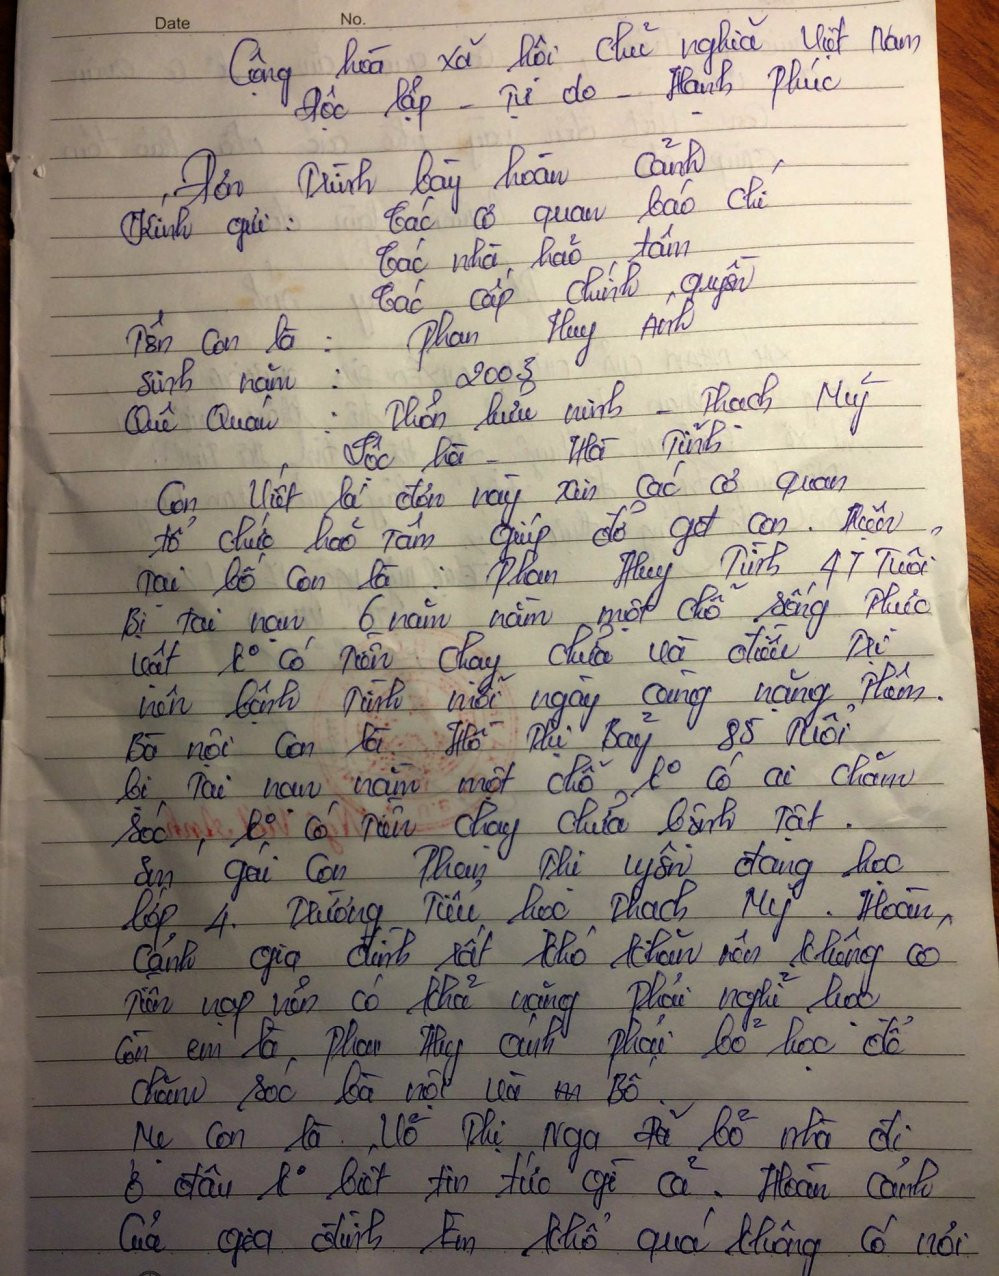 Date No.
Cộng hòa xã hôi chủ nghĩa Việt Nam
Độc lập - Tự do - Hanh Phúc
Đơn Trình bày hoàn Cảnh
Kính gửi : Các cơ quan báo chí
Các nhà hảo tâm
Các cấp chính quyền
Tên Con là : Phan Huy Anh
Sinh năm :
Quê Quán : Thôn lưu ninh - Thach Mỹ
lộc hà - Hà Tĩnh
Con Viết lá đơn này xin Các cơ quan
tổ chức hảo Tâm giúp đở gđ con.
tai bố Con là : Phan Huy Tình 47 Tuôi
Bị Tai nạn 6 năm nằm một chỗ sống Thực
vật ko có Tiền chạy chửa và điều Trị
nên bệnh Tình mỗi ngày càng nặng Thêm.
Bà nội Con là Hồ Thị Bảy 85 Tuổi
bi Tai nan nằm một chỗ ko có ai chăm
sóc, ko có Tiền chạy chửa bệnh Tật.
Em gái Con Phan Thi uyên đang học
lớp 4. Trường Tiểu học Thach Mỹ. Hoàn
Cảnh gia đình rất khó khăn nên không có
Tiền nạp nên có khả năng Phải nghỉ học
Còn em là Phan Huy ánh phải bỏ học để
chăm sóc bà nội và Bố.
Mẹ Con là Võ Thị Nga Đã bỏ nhà đi
ở đâu ko biết tin tức gì cả. Hoàn cảnh
Của gia đình Em khổ quá không có nơi